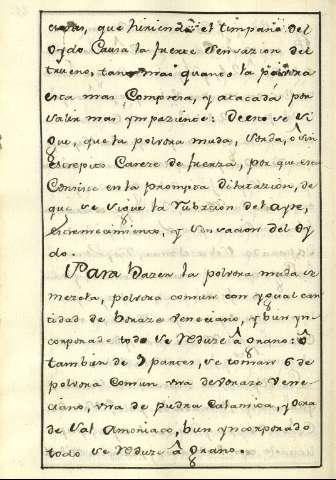 que hiriendo el timpano del
oydo Causa la fuerte Sensazion del
trueno, tanto mas quanto la polvora
esta mas Compresa, y atacada por
salir mas ympaziente: De esto se si
gue, que la polvora muda, Sorda, ô sin
estrepito Careze de fuerza, por que esta
Consiste en la prompta dilatazion, de
que se sigue la Vibrazion del ayre,
estremezimiento, y Sensacion del Oy
do.
Para hazer la polvora muda se
mezcla, polvora comun con ygual can
tidad de boraze veneciano, y bien yn
corporado todo se reduze â grano: ô
tambien de 9 partes, se toman 6 de
polvora Comun una de boraze Vene
ciano, una de piedra Calamica, y otra
de Sal Amoniaco, bien yncorporado
todo se reduze â grano.